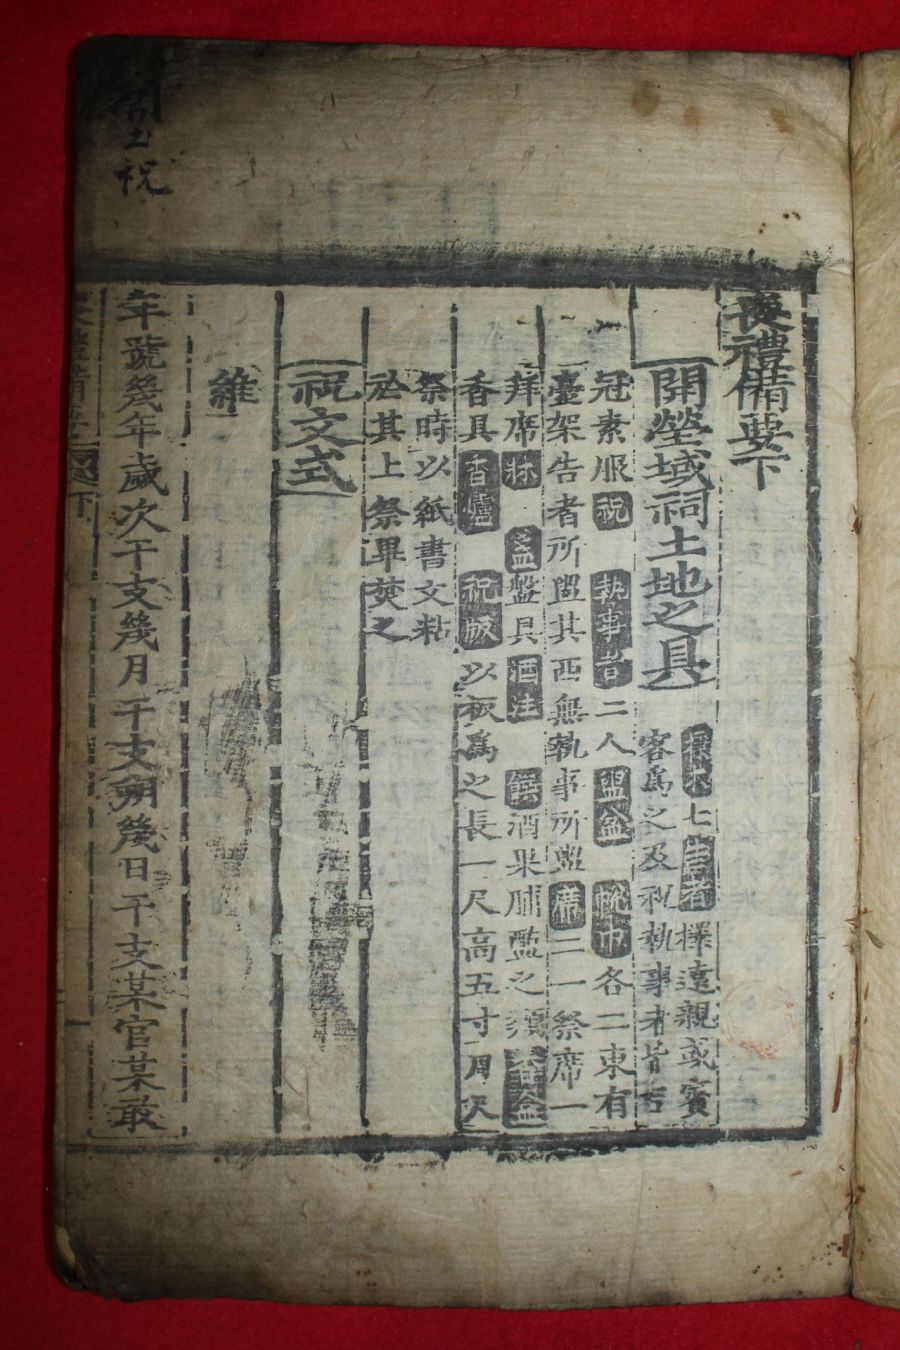 喪禮備要下
開塋域祠土地之具
標木七告者擇遠親或賓
客爲之及祝執事者皆吉
冠素服祝執事者二人盥盆帨巾各二東有
臺架告者所盥其西無執事所盥席二一祭席一
拜席牀盞盤具酒注饌酒果脯醢之類香盒
香具香爐祝版以板爲之長一尺高五寸用
祭時以紙書文粘
於其上祭畢焚之
祝文式
維
年號幾年歲次干支幾月干支朔幾日干支某官某敢
喪禮備要
下
開土祝